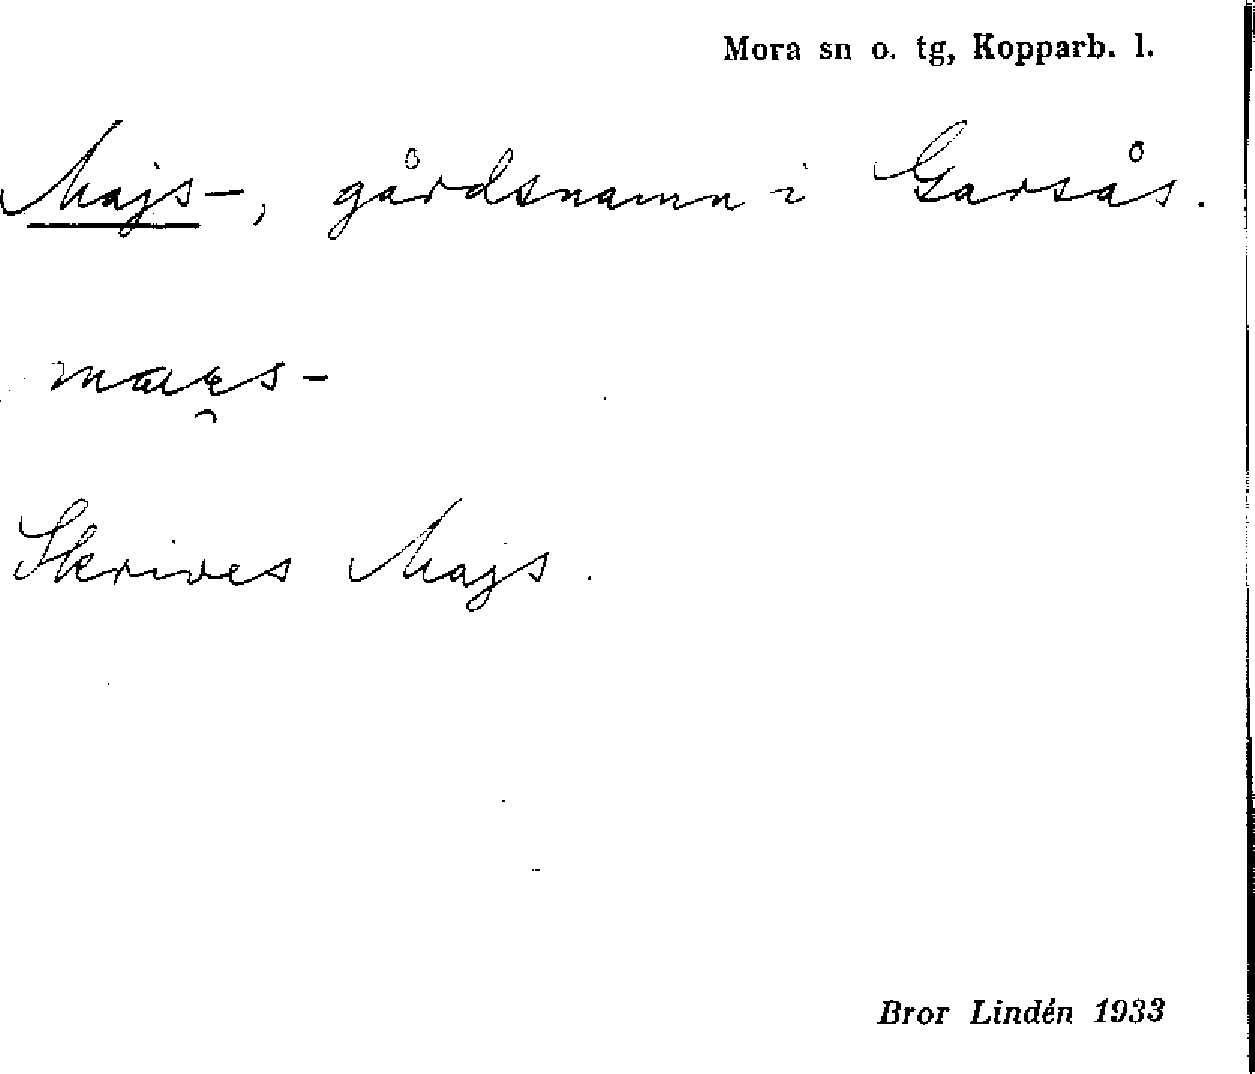 Mora sn o. tg, Kopparb. l.
Majs-, gårdsnamn i Garsås.
Skrives Majs.
Bror Lindén 1933